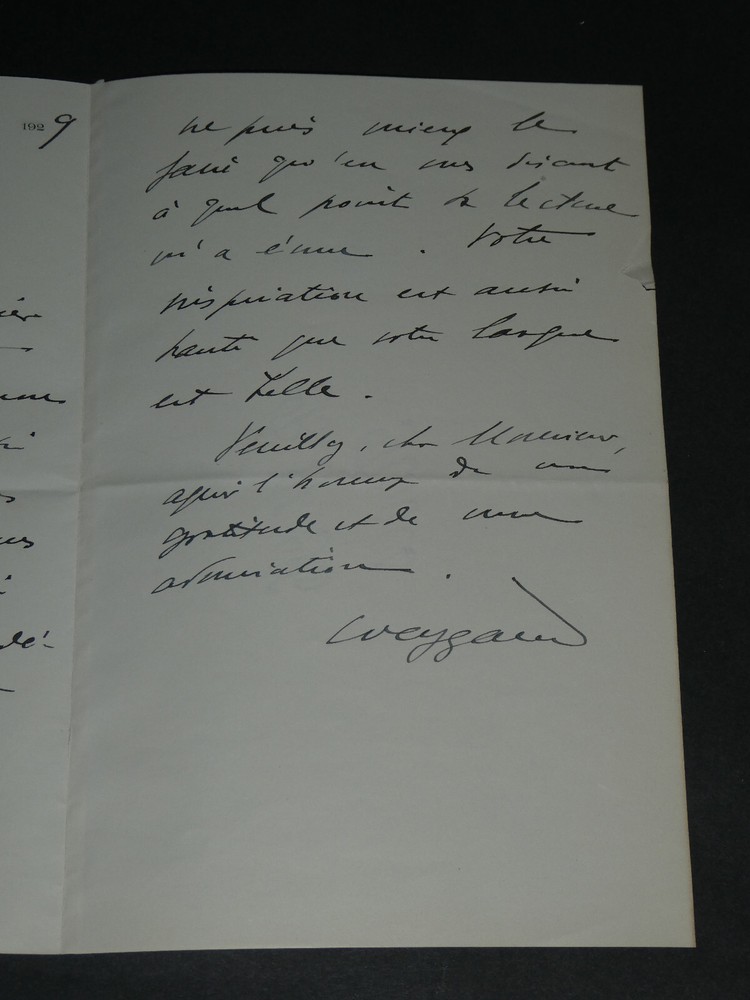 1929
ne puis mieux le
faire qu'en vous disant
à quel point sa lecture
m'a ému. Votre
inspiration est aussi
haute que votre langue
est belle.
Veuillez, cher Monsieur,
agréer l'hommage de ma
gratitude et de mon
admiration.
Weygand
dé-